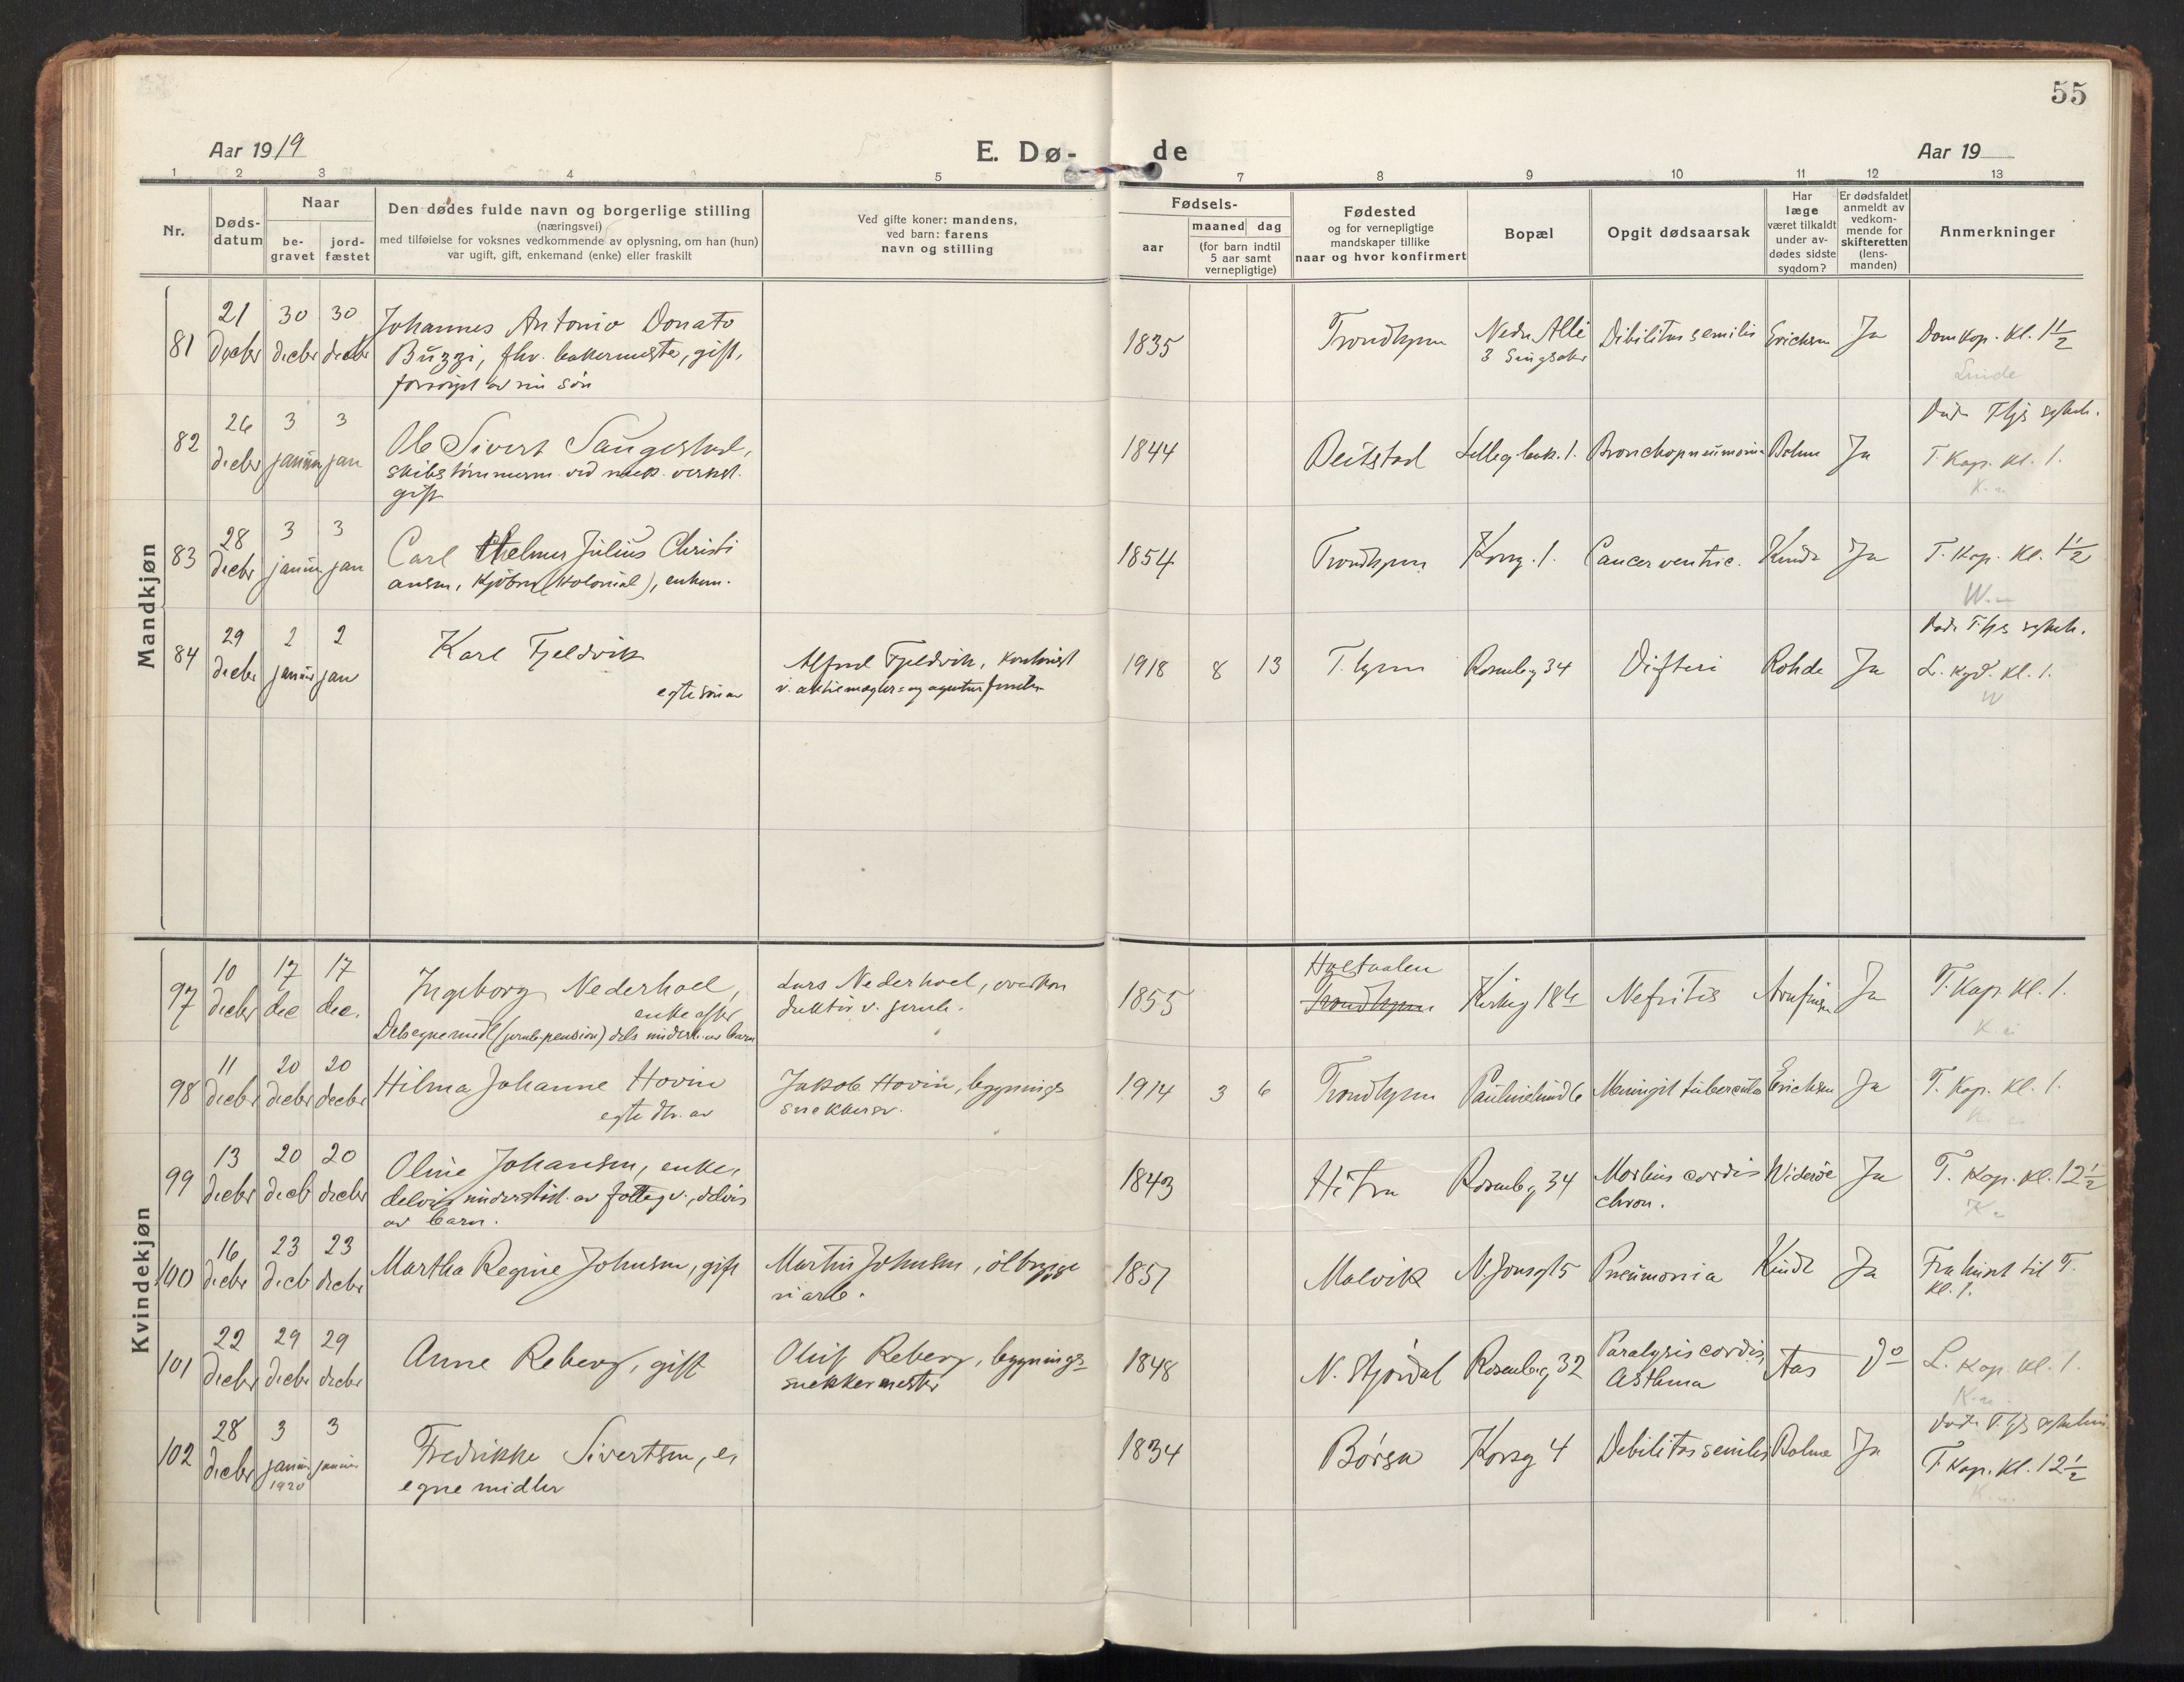 55
Aar 1919
E. Dø-
de
Aar 19
1 2 3 4 5 7 8 9 10 11 12 13
Nr.
Døds-
datum
Naar
be-
gravet
jord-
fæstet
Den dødes fulde navn og borgerlige stilling
(næringsvei)
med tilføielse for voksnes vedkommende av oplysning, om han (hun)
var ugift, gift, enkemand (enke) eller fraskilt
Ved gifte koner: mandens,
ved barn: farens
navn og stilling
Fødsels-
aar
maaned dag
(for barn indtil
5 aar samt
vernepligtige)
Fødested
og for vernepligtige
mandskaper tillike
naar og hvor konfirmert
Bopæl
Opgit dødsaarsak
Har
læge
været tilkaldt
under av-
dødes sidste
sygdom?
Er dødsfaldet
anmeldt av
vedkom-
mende for
skifteretten
(lens-
manden)
Anmerkninger
Mandkjøn
81
21 30 30
Decbr decbr decbr
Johannes Antonio Donato
Buzzi, fhv. bakermester, gift,
forsørget av sin søn
1835
Trondhjem
Nedre Allé
3 Singsaker
Debilitas senilis
Erichsen
Ja
Domkap. kl. 1 1/2
Linde
82
26 3 3
decbr januar jan
Ole Sivert Saugestad,
skibstømmerm. ved mek. verkst.
gift
1844
Beitstad
Lillegbak. 1.
Bronchopneumonia
Ja
Døde Thjs sykeh.
T. Kap. kl. 1.
83
28 3 3
decbr januar jan
Carl Julius Christi
ansen, kjøbm (kolonial), enkem.
1854
Trondhjem
Korsg. 1.
Cancer ventric.
Ja
T. Kap. kl. 1 1/2
84
29 2 2
decbr januar jan
Karl Fjeldvik
egte søn av
Alfred Fjeldvik, kontorist
v. aktiemægler- og agenturforretn
1918 8 13
T. hjem
Rosenb.g 34
Difteri
Rohde
Ja
Døde T.hjs sykeh.
L. kap. kl. 1.
W
Kvindekjøn
97
10 17 17
decbr dec dec.
Ingeborg Nederhoel,
enke efter
Dels egne midl (jernb.pension) dels underh. av barn
Lars Nederhoel, overkon
duktør v. jernb.
1855
Holtaalen
Trondhjem
Kirkeg 18b
Nefritis
Ja
T. Kap. kl. 1.
98
11 20 20
decbr decbr decbr
Hilma Johanne Hovin
egte dtr. av
Jakob Hovin, bygnings
snekkersv.
1914 3 6
Trondhjem
Paulinelund 6
Meningit tubercula
Erichsen
Ja
T. Kap. kl. 1.
99
13 20 20
decbr decb decbr
Oline Johansen, enke,
delvis understøt. av fattigv., delvis
av barn.
1843
Hitra
Rosenb.g 34
Morbus cordis
chron.
Widerøe
Ja
T. Kap. kl. 12 1/2
100
16 23 23
decbr decb decbr
Martha Regine Johnsen, gift
Martin Johnsen, ølbrygge
riarb.
1857
Malvik
N. Jonsg 15
Pneumonia
Ja
Fra huset til T.
kl. 1.
101
22 29 29
decbr decbr decbr
Anne Reberg, gift
Oluf Reberg, bygnings-
snekkermester
1848
N. Stjørdal
Rosenb.g 32
Paralysis cordis,
Asthma
Aas
do
L. Kap. kl. 1.
102
28 3 3
decbr januar januar
1920
Fredrikke Sivertsen, e,
egne midler
1834
Børsa
Korsg 4
Debilitas senilis
Ja
Døde T.hjs sykehus
T Kap. kl. 12 1/2